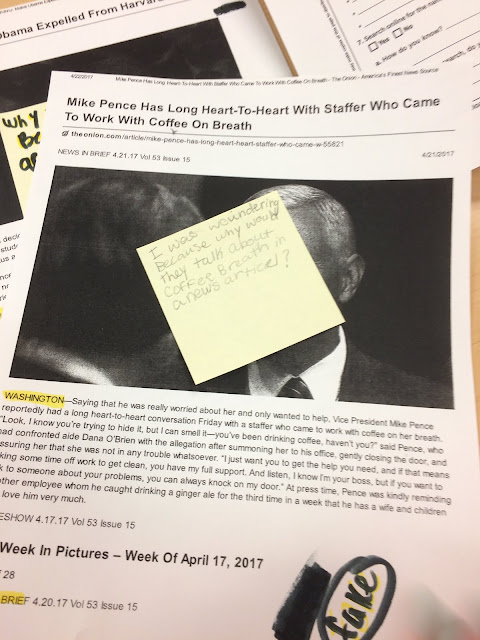 Obama Expelled From Harvar
7. Search online for the nam
Yes No
a. How do you know?
4/22/2017
Mike Pence Has Long Heart-To-Heart With Staffer Who Came To Work With Coffee On Breath - The Onion - America's Finest News Source
Mike Pence Has Long Heart-To-Heart With Staffer Who Came
To Work With Coffee On Breath
theonion.com/article/mike-pence-has-long-heart-heart-staffer-who-came-w-55821
NEWS IN BRIEF 4.21.17 Vol 53 Issue 15
4/21/2017
why
I was woundering
Because why would
they talk about
coffee Breath in
a news articel?
WASHINGTON—Saying that he was really worried about her and only wanted to help, Vice President Mike Pence
reportedly had a long heart-to-heart conversation Friday with a staffer who came to work with coffee on her breath.
"Look, I know you're trying to hide it, but I can smell it—you've been drinking coffee, haven't you?" said Pence, who
had confronted aide Dana O'Brien with the allegation after summoning her to his office, gently closing the door, and
ssuring her that she was not in any trouble whatsoever. "I just want you to get the help you need, and if that means
king some time off work to get clean, you have my full support. And listen, I know I'm your boss, but if you want to
k to someone about your problems, you can always knock on my door." At press time, Pence was kindly reminding
other employee whom he caught drinking a ginger ale for the third time in a week that he has a wife and children
love him very much.
ESHOW 4.17.17 Vol 53 Issue 15
Week In Pictures – Week Of April 17, 2017
28
BRIEF 4.20.17 Vol 53 Issue 15
fake